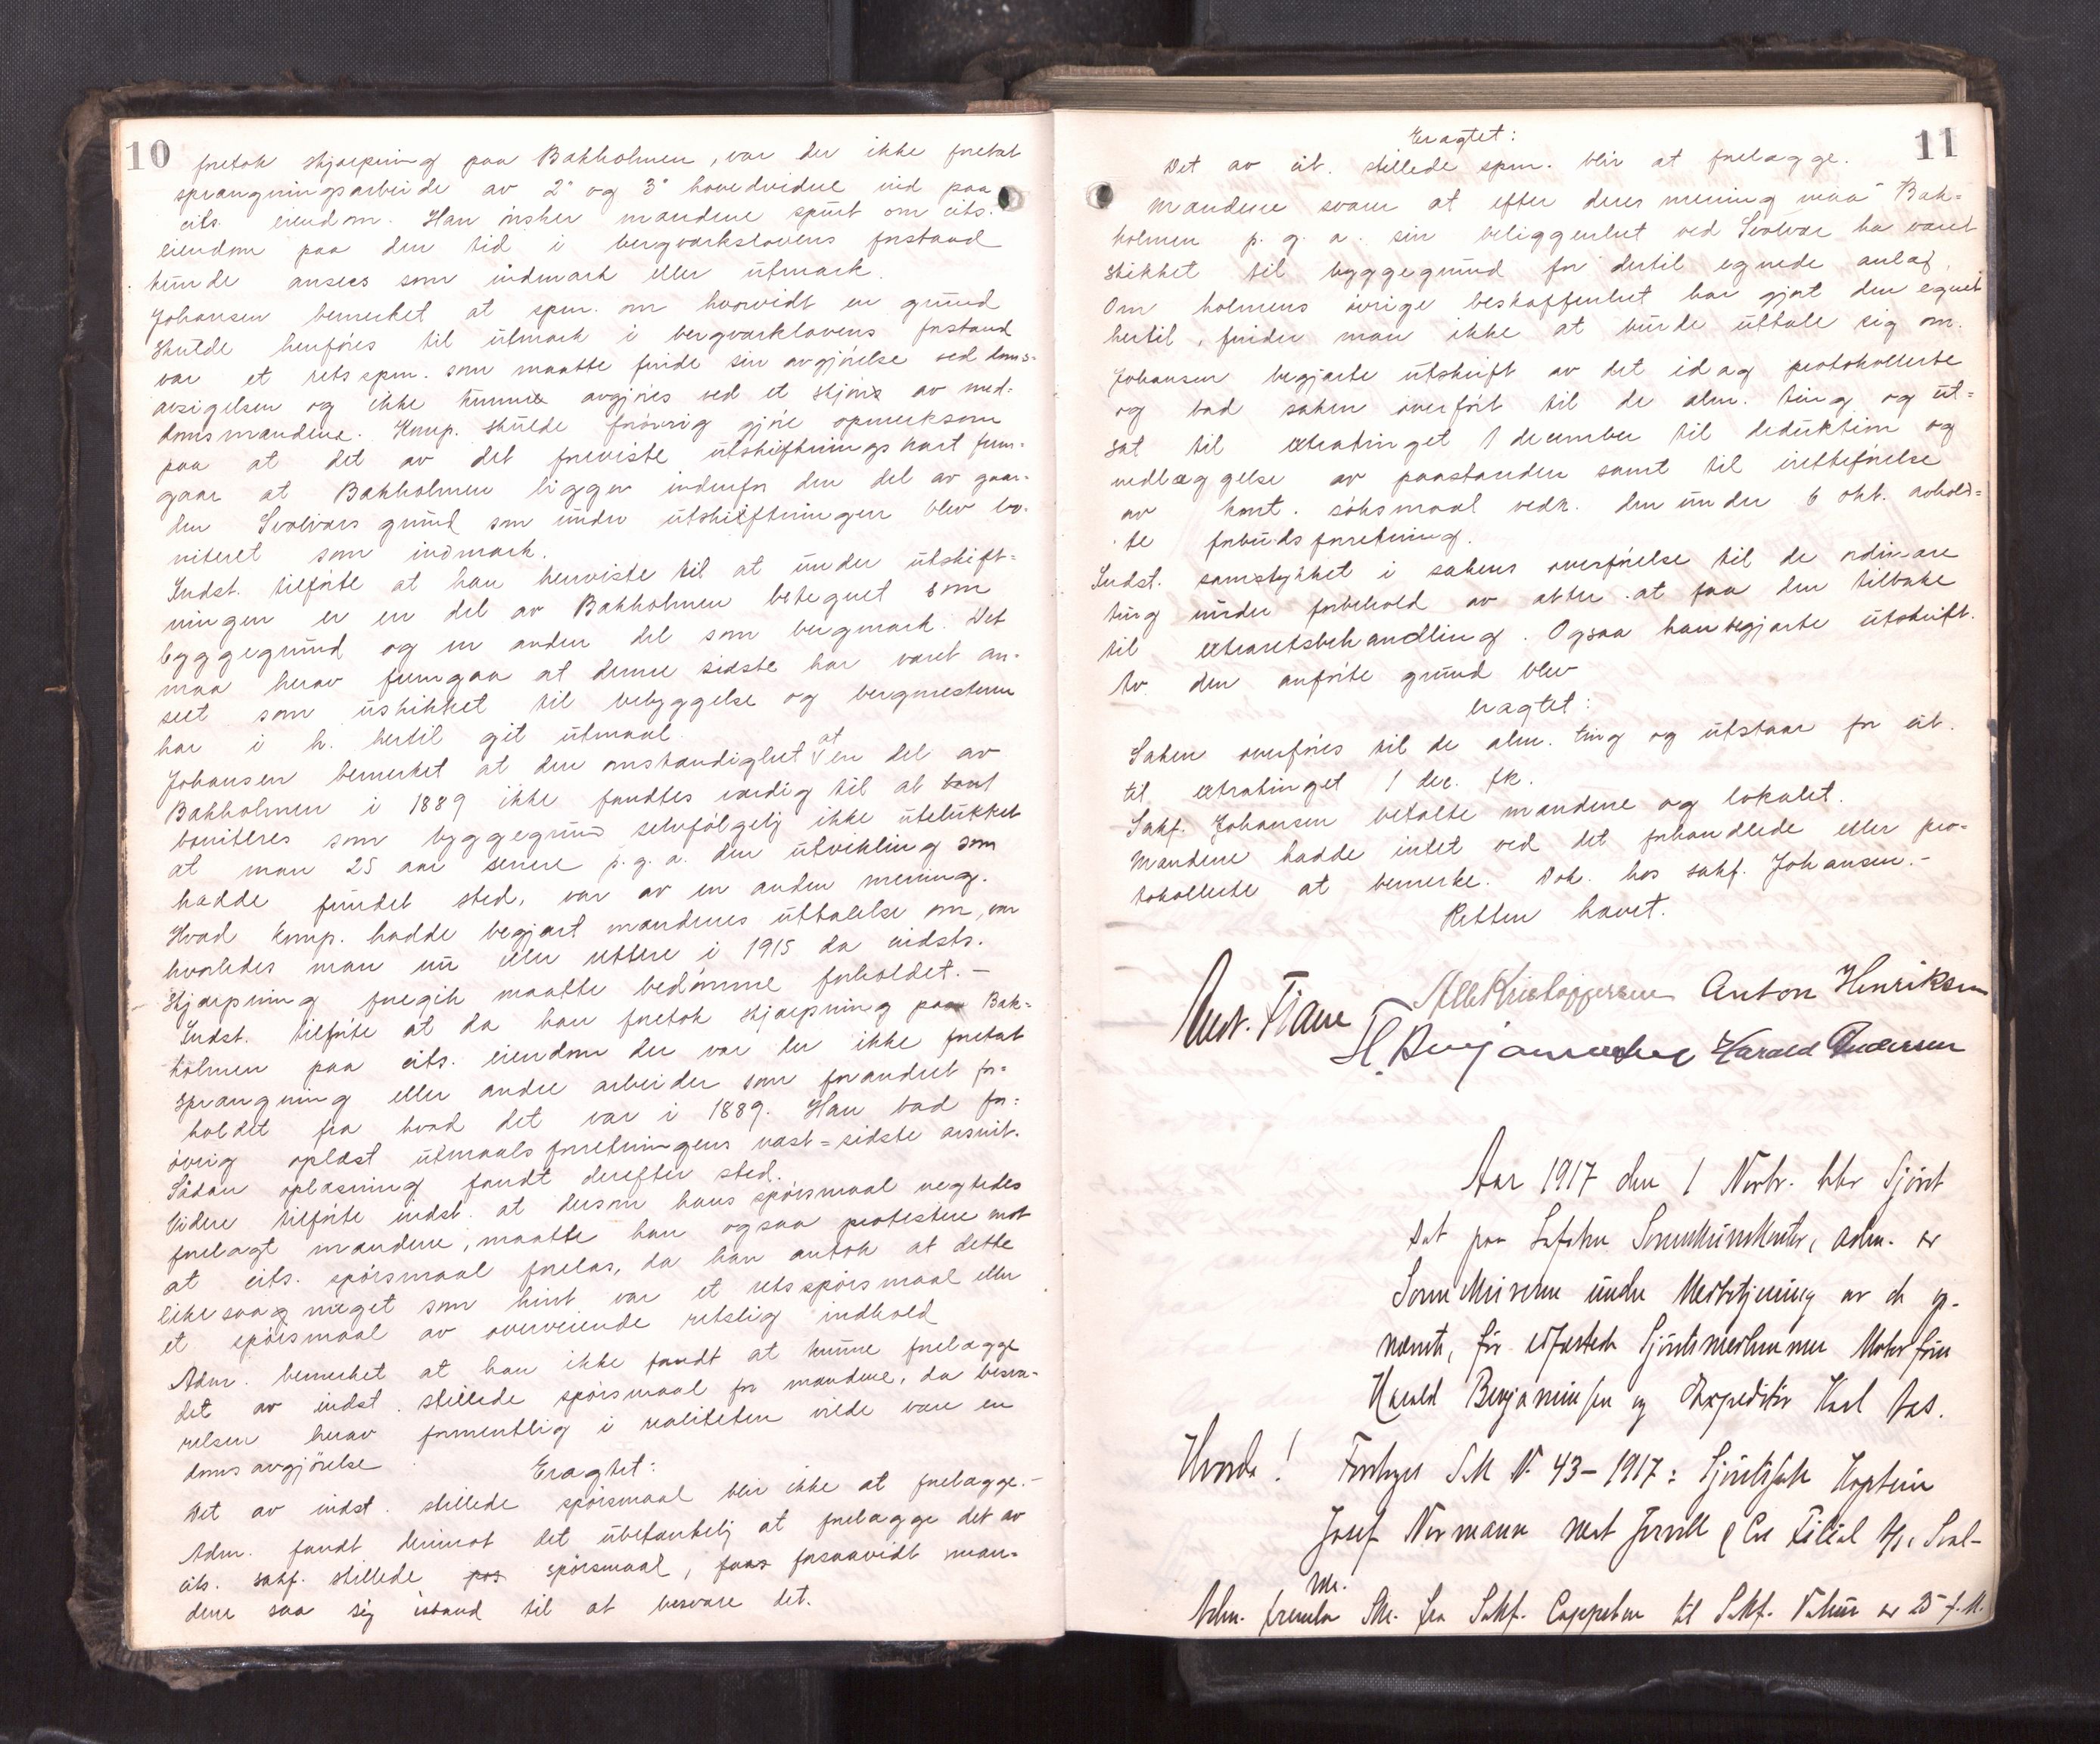 10
foretok skjærpning paa Bakholmen, var der ikke foretat
sprængningsarbeide av 2° og 3° hovedvidne ind paa
cits. eiendom. Han ønsker mændene spurt om cits.
eiendom paa den tid i bergverkslovens forstand
kunde ansees som indmark eller utmark.
Johansen bemerket at spm. om hvorvidt en grund
skulde henføres til utmark i bergverkslovens forstand
var et retsspm. som maatte finde sin avgjørelse ved doms-
avsigelsen og ikke kunne avgjøres ved et skjøn av med-
domsmændene. Komp. skulde forøvrig gjøre opmerksom
paa at det av det foreviste utskiftningskart frem-
gaar at Bakholmen ligger indenfor den del av gaar-
den Svolværs grund som under utskiftningen blev bo-
niteret som indmark.
Indst. tilførte at han henviste til at under utskift-
ningen er en del av Bakholmen betegnet som
byggegrund og en anden del som bergmark. Det
maa herav fremgaa at denne sidste har været an-
seet som uskikket til bebyggelse og bergmesteren
har i h. hertil git utmaal.
Johansen bemerket at den omstændighet at en del av
Bakholmen i 1889 ikke fandtes værdig til at
boniteres som byggegrund selvfølgelig ikke utelukket
at man 25 aar senere p.g.a. den utvikling som
hadde fundet sted, var av en anden mening.
Hvad komp. hadde begjært mændenes uttalelse om, var
hvorledes man nu eller rettere i 1915 da indsts.
skjærpning foregik maatte bedømme forholdet. —
Indst. tilførte at da han foretok skjærpning paa Bak-
holmen paa cits. eiendom der var der ikke foretat
sprængning eller andre arbeider som forandret for-
holdet fra hvad det var i 1889. Han bad for-
øvrig oplæst utmaalsforretningens næst-sidste avsnit.
Sådan oplæsning fandt derefter sted.
Videre tilførte indst. at dersom hans spørsmaal negtedes
forelagt mændene, maatte han ogsaa protestere mot
at cits. spørsmaal forelas, da han antok at dette
likesaa meget som hint var et retsspørsmaal eller
et spørsmaal av overveiende retslig indhold
Adm. bemerket at han ikke fandt at kunne forelægge
det av indst. stillede spørsmaal for mændene, da besva-
relsen herav formentlig i realiteten vilde være en
domsavgjørelse.
Eragtet:
Det av indst. stillede spørsmaal blir ikke at forelægge.-
Adm. fandt derimot det ubetænkelig at forelægge det av
cits. sakf. stillede spørsmaal, forsaavidt mæn-
dene saa sig istand til at besvare det.
11
Eragtet:
Det av cit. stillede spm. blir at forelægge.
Mændene svarer at efter deres mening maa Bak-
holmen p.g.a. sin beliggenhet ved Svolvær ha været
skikket til byggegrund for dertil egnede anlæg.
Om holmens øvrige beskaffenhet har gjort den egnet
hertil, finder man ikke at burde uttale sig om.
Johansen begjærte utskrift av det idag protokollerte
og bad saken overført til de alm. ting og ut-
sat til extratinget 1 december til deduktion og
nedlæggelse av paastanden samt til iretteførelse
av kont. søksmaal vedr. den under 6 okt. avhold-
te forbudsforretning.
Indst. samstykket i sakens overførelse til de ordinære
ting under forbehold av atter at faa den tilbake
til extraretsbehandling. Ogsaa han begjærte utskrift.
Av den anførte grund blev
eragtet:
Saken overføres til de alm. ting og utstaar for cit.
til extratinget 1 dec. fk.
Sakf. Johansen betalte mændene og lokalet.
Mændene hadde intet ved det forhandlede eller pro-
tokollerte at bemerke. Dok. hos sakf. Johansen.-
Retten hævet.
Anton Henriksen
Harald Andersen
Aar 1917 den 1 Novbr. blev Sjøret
sat paa Svolvær Sorenskriverkontor, adm. av
Sorenskriveren under Medbetjening av de op-
nævnte, før edfæstede Sjøretsmedlemmer Motorfører
Harald Benjaminsen og Expeditør Karl Aas.
Hvorda! Foretoges Sak N. 43-1917: Sjøretssak Kaptein
Josef Normann mot Jorvell & Co Filial A/s, Svol-
vær.
Adm. fremla Skr. fra Sakf. Cappelen til Sakf. av 25 f. M.